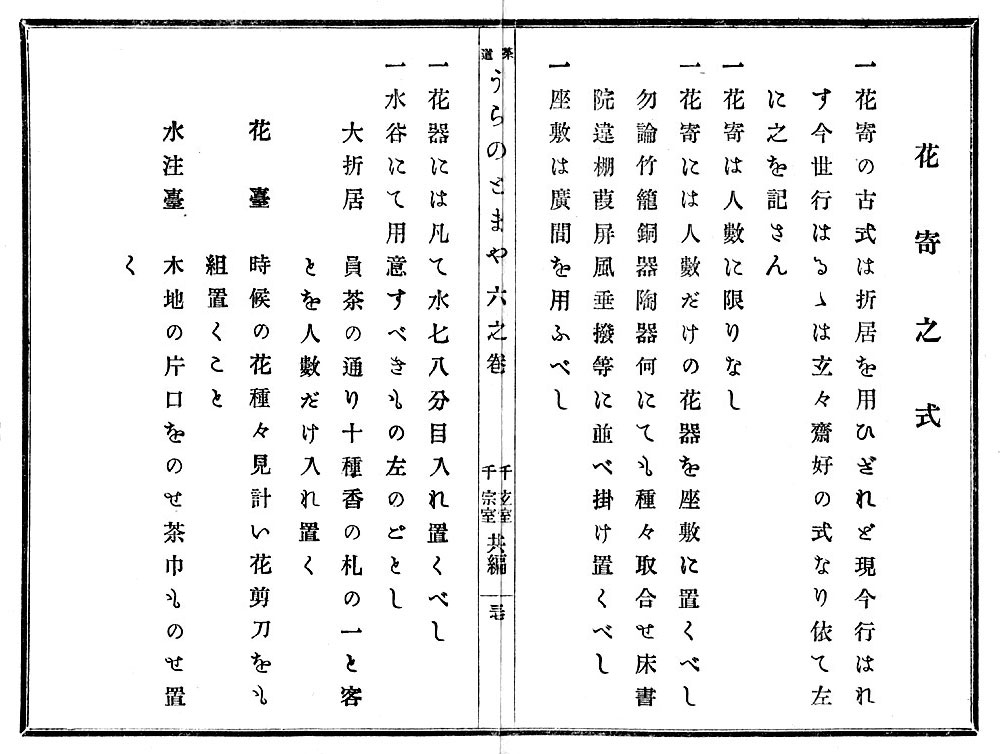 花寄之式
一花寄の古式は折居を用ひざれど現今行はれ
す今世行はるゝは玄々齋好の式なり依て左
に之を記さん
一花寄は人數に限りなし
一花寄には人數だけの花器を座敷に置くべし
勿論竹籠銅器陶器何にても種々取合せ床書
院違棚葭屏風垂撥等に並べ掛け置くべし
一座敷は廣間を用ふべし
茶道うらのとまや六之卷
千玄室
千宗室
共編
一花器には凡て水七八分目入れ置くべし
一水谷にて用意すべきもの左のごとし
大折居 員茶の通り十種香の札の一と客
とを人數だけ入れ置く
花臺 時候の花種々見計い花剪刀をも
組置くこと
水注臺 木地の片口をのせ茶巾ものせ置
く